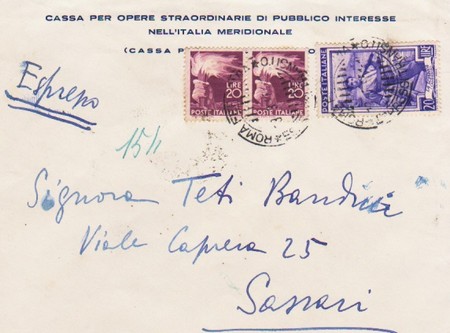 CASSA PER OPERE STRAORDINARIE DI PUBBLICO INTERESSE
NELL'ITALIA MERIDIONALE
(CASSA P
LIRE 20
POSTE ITALIANE
LIRE 20
POSTE ITALIANE
POSTE ITALIANE
LIRE 20
ROMA FE
Espresso
154
Signora Teti Bandini
Viale Caprera 25
Sassari